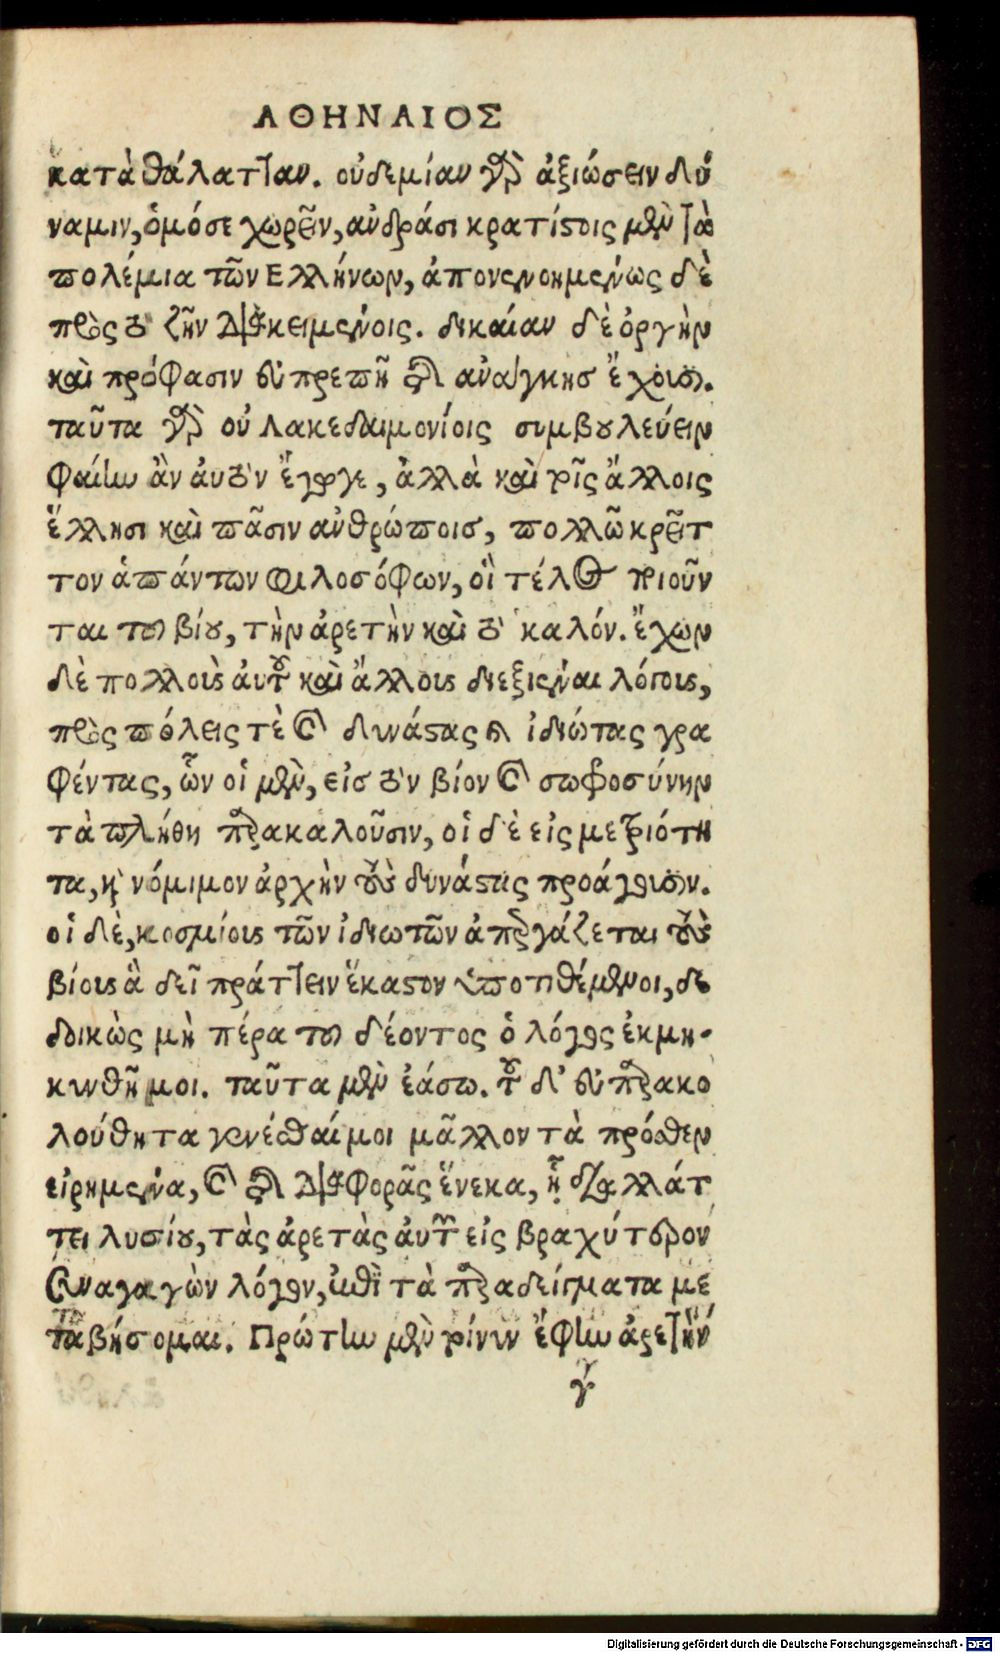 ΑΘΗΝΑΙΟΣ
κατὰ θάλατταν. οὐδεμίαν γὰρ ἀξιώσειν δύ
ναμιν, ὁμόσε χωρεῖν, ἀνδράσι κρατίστοις μὲν τὰ
πολέμια τῶν Ελλήνων, ἀπονενοημένως δὲ
πρὸς τὸ ζῆν διακειμένοις. δικαίαν δὲ ὀργὴν
καὶ πρόφασιν εὐπρεπῆ τῆς ἀνάγκης ἔχουσι.
ταῦτα γὰρ οὐ Λακεδαιμονίοις συμβουλεύειν
φαίην ἂν ἀυτὸν ἔγωγε, ἀλλὰ καὶ τοῖς ἄλλοις
ἕλλησι καὶ πᾶσιν ἀνθρώποις, πολλῶ κρεῖτ
τον ἁπάντων φιλοσόφων, οἳ τέλος ποιοῦν
ται του βίου, τὴν ἀρετὴν καὶ τὸ καλόν. ἔχων
δὲ πολλοὺς ἀυτοῦ καὶ ἄλλους διεξιέναι λόγους,
πρὸς πόλεις τὲ καὶ δυνάστας καὶ ἰδιώτας γρα
φέντας, ὧν οἱ μὲν, εἰς τὸν βίον καὶ σωφροσύνην
τὰ πλήθη παρακαλοῦσιν, οἱ δὲ εἰς μετριότη
τα, καὶ νόμιμον ἀρχὴν τοὺς δυνάστας προάγουσιν.
οἱ δὲ, κοσμίους τῶν ἰδιωτῶν ἀπεργάζεται τοὺς
βίους ἃ δεῖ πράττειν ἕκαστον ὑποτιθέμενοι, δε
δοικὼς μὴ πέρα του δέοντος ὁ λόγος ἐκμη-
κυνθῆ μοι. ταῦτα μὲν ἐάσω. τοῦ δ' εὐπαρακο
λούθητα γενέσθαί μοι μᾶλλον τὰ πρόσθεν
εἰρημένα, καὶ τῆς διαφορᾶς ἕνεκα, ᾗ διαλλάτ
τει λυσίου, τὰς ἀρετὰς ἀυτῶν εἰς βραχύτερον
συναγαγὼν λόγον, ἐπὶ τὰ παραδείγματα με
ταβήσομαι. Πρώτην μὲν τοίνυν ἔφην ἀρετὴν
γ
Digitalisierung gefördert durch die Deutsche Forschungsgemeinschaft - DFG